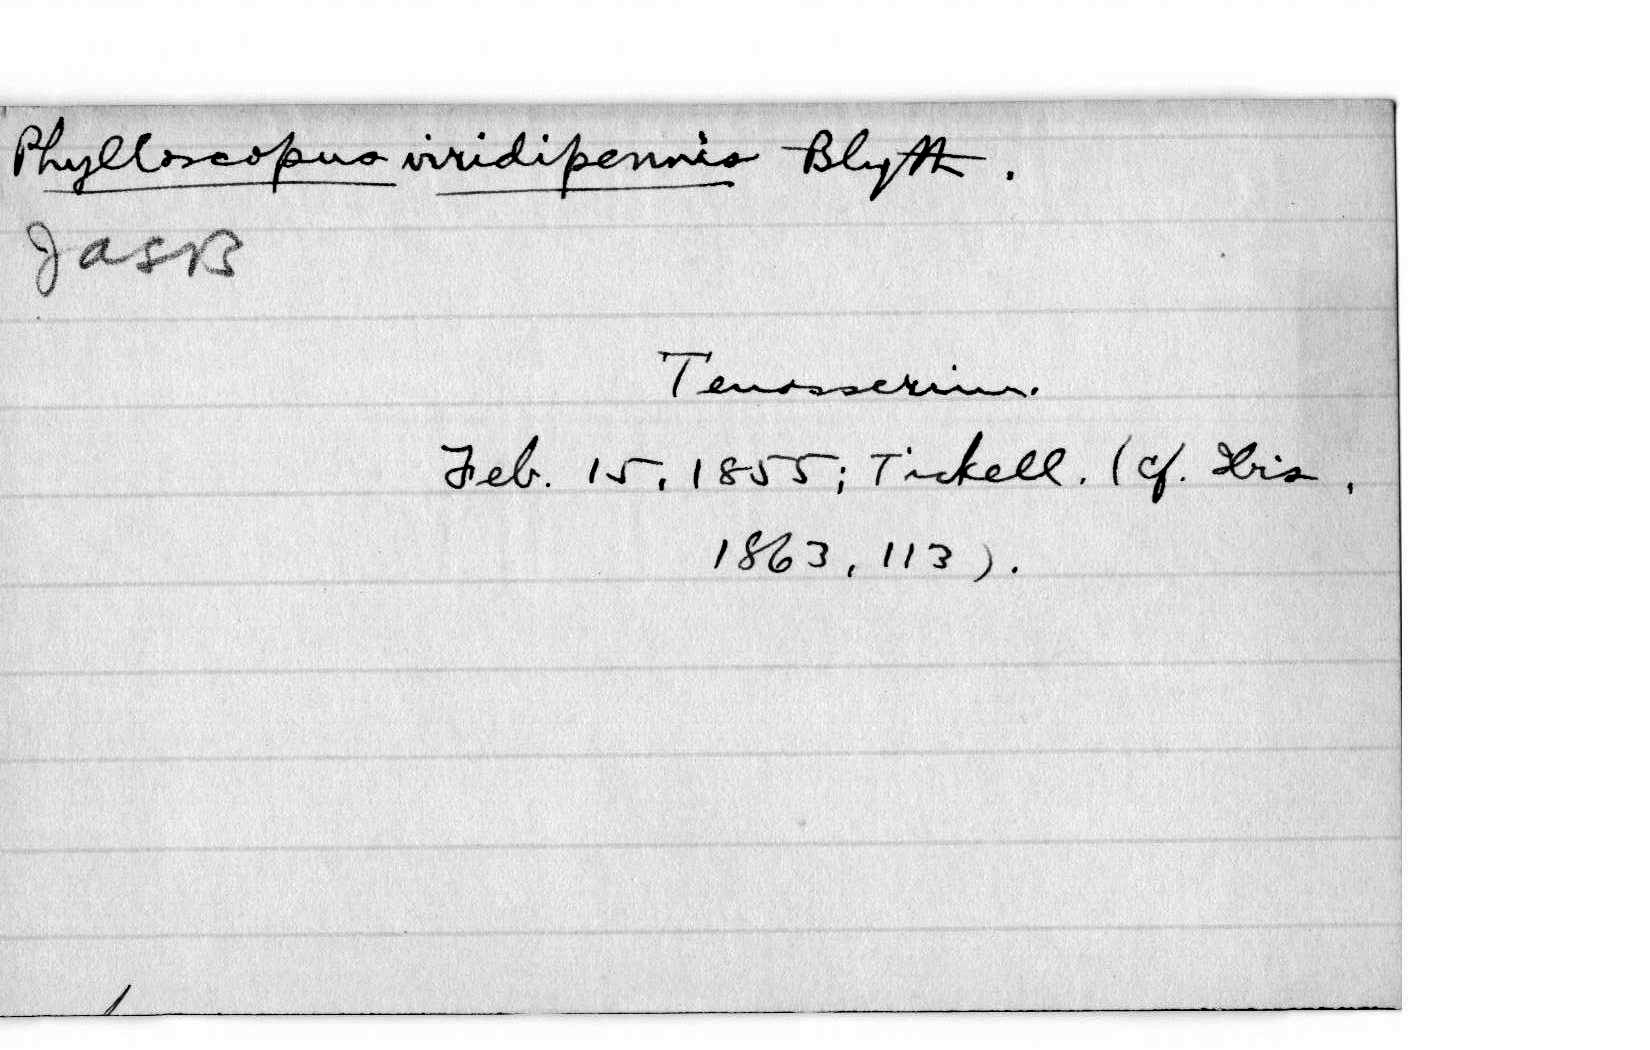 Phylloscopus viridipennis Blyth.
JASB
Tenasserim.
Feb. 15, 1855; Tickell. (cf. Ibis,
1863, 113).